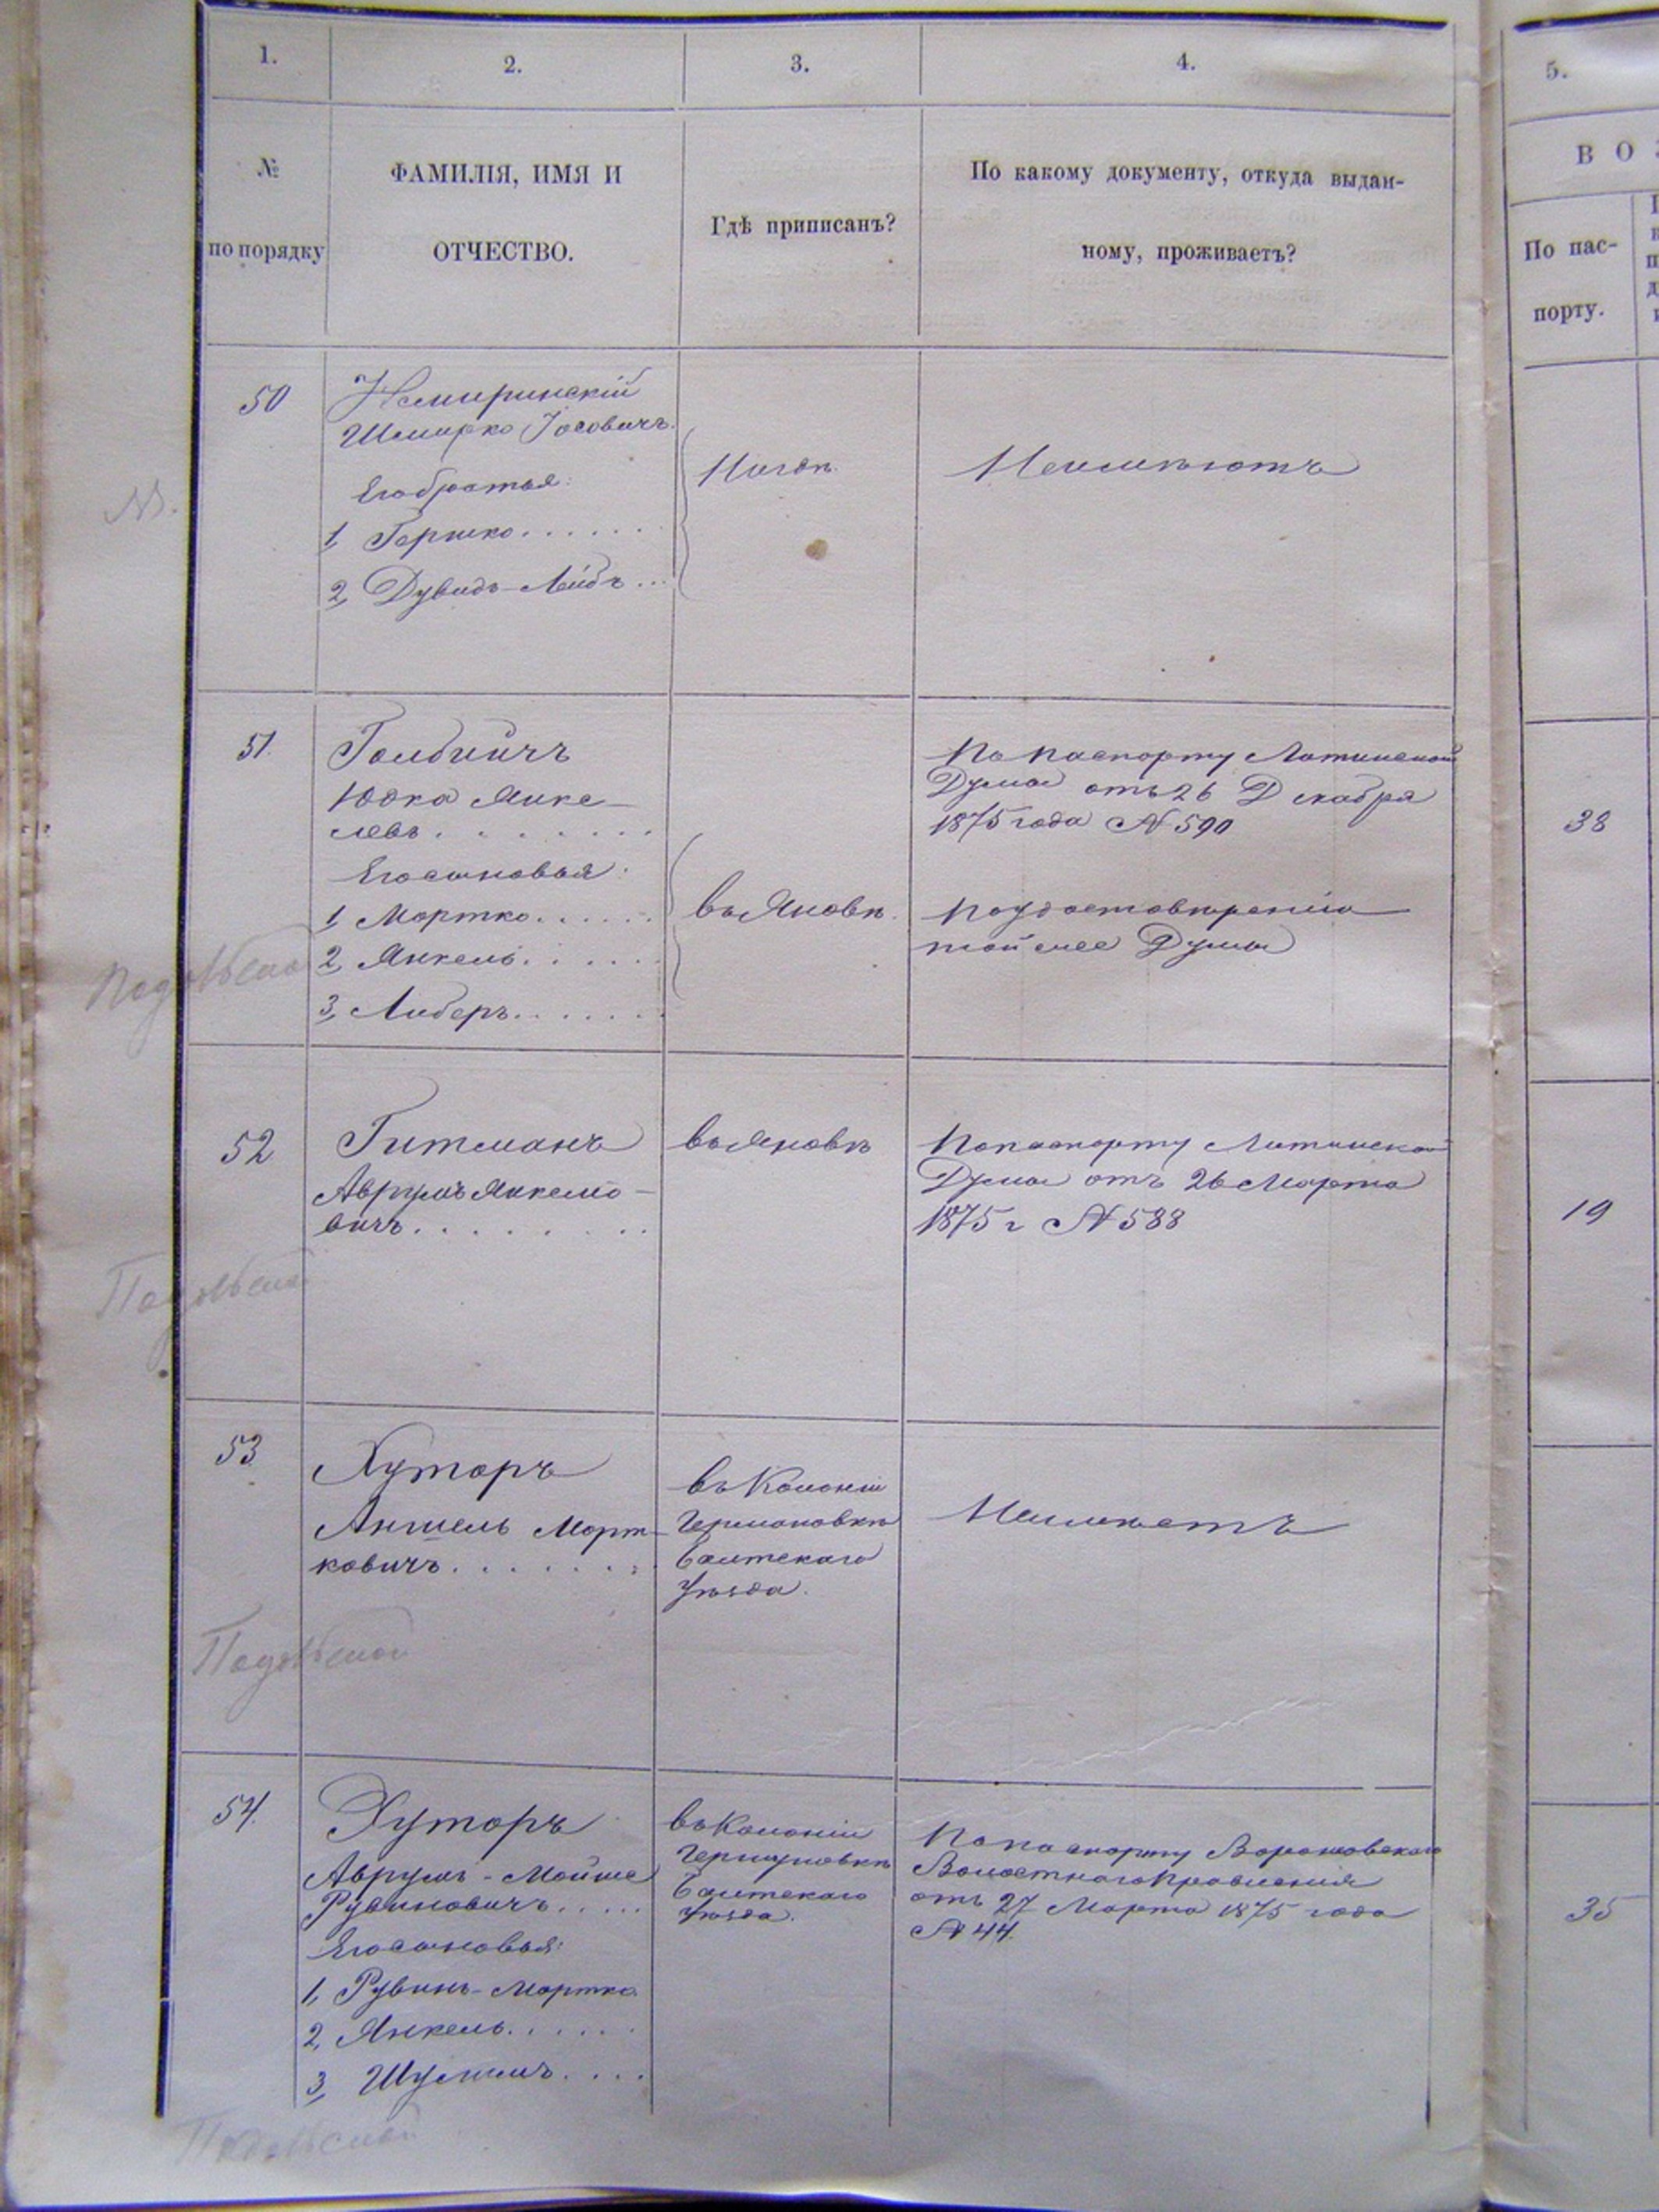 1.
2.
3.
4.
5.
№
по порядку
ФАМИЛІЯ, ИМЯ И
ОТЧЕСТВО.
Гдѣ приписанъ?
По какому документу, откуда выдан-
ному, проживаетъ?
В О
По пас-
порту.
50
Немиринскій
Шмирко Іосовичъ.
Его братья:
1, Гершко......
2, Дувидъ-Лейбъ...
Нигдѣ.
Неимѣютъ
№.
51.
Голдинчъ
Юдка Янке-
левъ........
Его сыновья:
1, Мортко......
2, Янкель......
3, Либеръ.......
въ Яновѣ.
По паспорту Литинской
Думы отъ 26 Декабря
1875 года № 590
По удостовѣренію
той же Думы
38
Подольской
52
Гитманъ
Аврумъ Янкело-
вичъ........
въ Яновѣ
По паспорту Литинской
Думы отъ 26 Марта
1875 г № 588
19
Подольской
53
Хуторъ
Аншель Морт-
ковичъ.......
въ Колоніи
Гермоновкѣ
Балтскаго
Уѣзда.
Неимѣетъ
Подольской
54.
Хуторъ
Аврумъ-Мойше
Рувиновичъ.....
Его сыновья:
1, Рувинъ-Мортко.
2, Янкель......
3, Шулимъ....
въ Колоніи
Балтскаго
Уѣзда.
По паспорту
Волостнаго Правленія
отъ 27 Марта 1875 года
№ 44.
35
Подольской